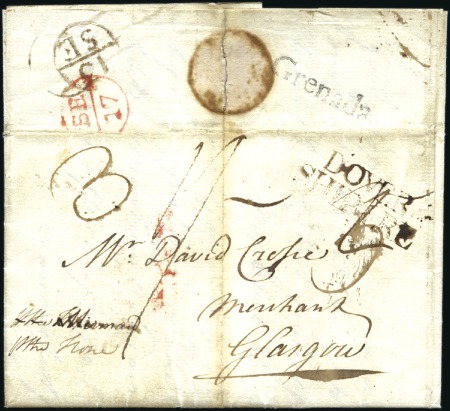 SE
15
SE
17
Grenada
DOVER
SHIP LRE
8
Mr. David Crosie
Merchant
Glasgow